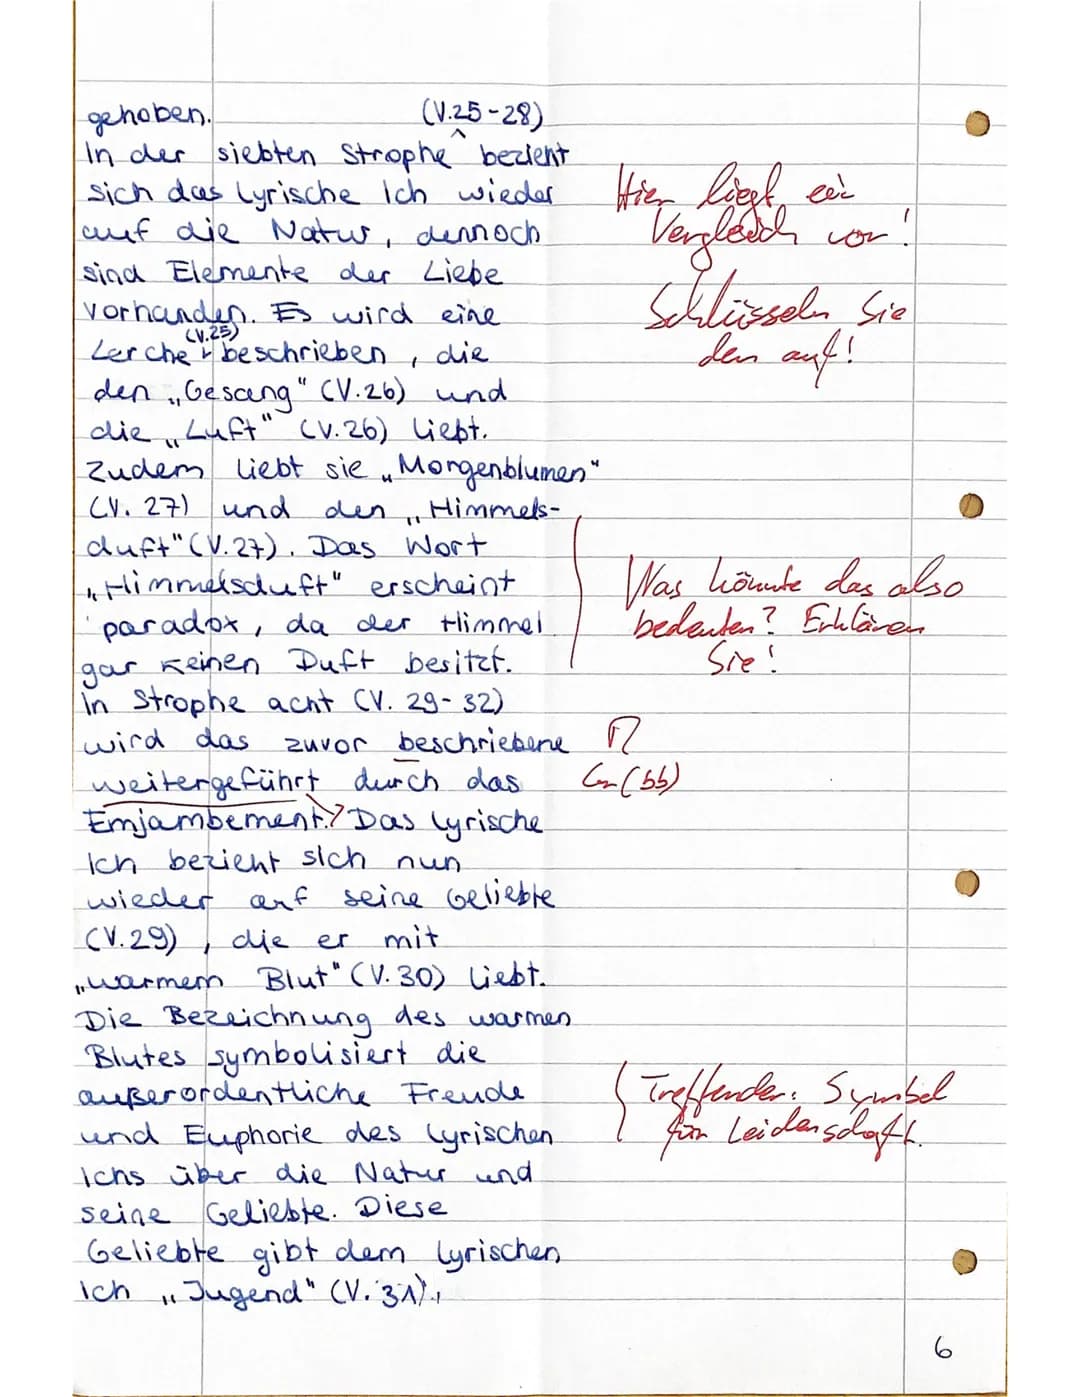 gehoben.
(V.25-28)
In der siebten Strophe ^ bezieht
sich das lyrische Ich wieder
auf die Natur, dennoch
sind Elemente der Liebe
vorhanden. Es wird eine
(V.25)
Lerche beschrieben, die
den „Gesang" (V.26) und
die „Luft" (V.26) liebt.
Zudem liebt sie „Morgenblumen"
(V. 27) und den „Himmels-
duft" (V.27). Das Wort
„Himmelsduft" erscheint
paradox, da der Himmel
gar keinen Duft besitzt.
In Strophe acht (V. 29-32)
wird das zuvor beschriebene
weitergeführt durch das
Emjambement. Das lyrische
Ich bezieht sich nun
wieder auf seine Geliebte
(V.29), die er mit
„warmem Blut" (V.30) liebt.
Die Bezeichnung des warmen
Blutes symbolisiert die
außerordentliche Freude
und Euphorie des lyrischen
Ichs über die Natur und
seine Geliebte. Diese
Geliebte gibt dem lyrischen
Ich „Jugend" (V. 31),
Hier liegt ein
Vergleich vor!
Schlüsseln Sie
den auf!
Was könnte das also
bedeuten? Erklären
Sie!
(bb)
Treffender: Symbol
für Leidenschaft.
6